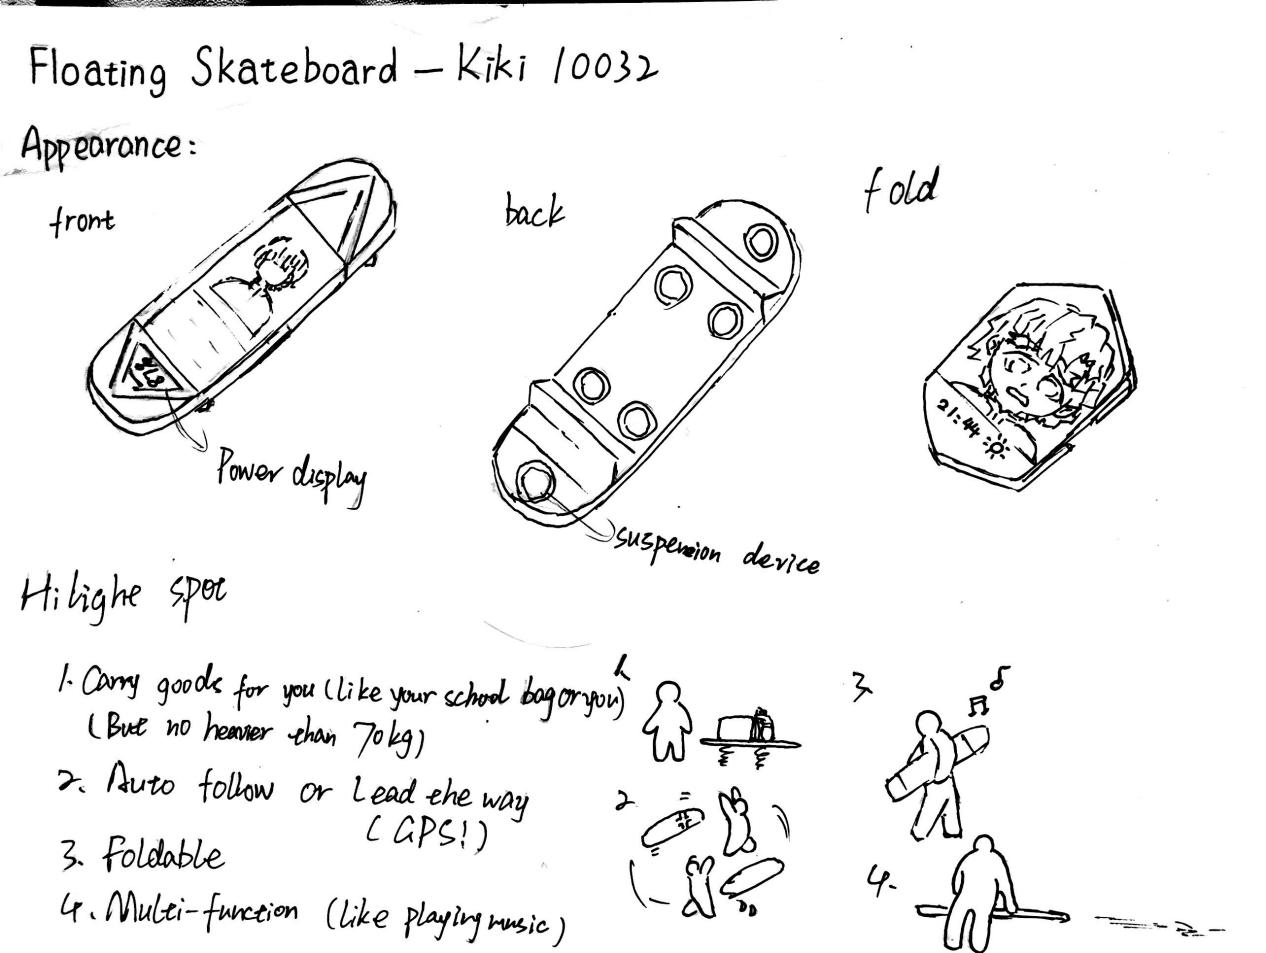 Floating Skateboard – Kiki 10032
Appearance:
front
back
fold
Power display
21:44
suspension device
Hilighe spot
1. Carry goods for you (like your school bag or you)
(But no heavier than 70kg)
2. Auto follow or Lead the way
(GPS!)
3. Foldable
4. Multi-function (like playing music)
1.
2
3.
4.